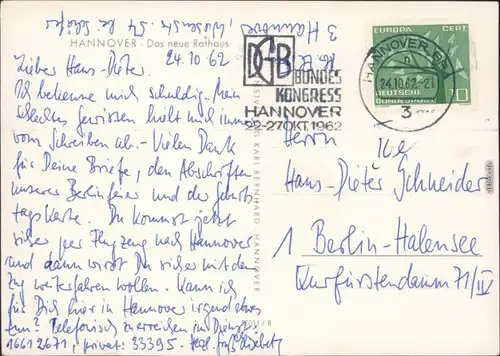 3 Hannover, Wiesenstr. 54
HANNOVER · Das neue Rathaus
24.10.62
Lieber Hans-Dieter.
Ich bekenne mich schuldig. Mein
schlechtes Gewissen hielt mich immer
vom Schreiben ab. - Vielen Dank
für Deine Briefe, den Abschriften
unserer Berlinfeier und der Geburts
tagskarte. Du kommst jetzt
sicher per Flugzeug nach Hannover
und dann wirst Du sicher mit dem
Zug weiterfahren wollen. Kann ich
für Dich hier in Hannover irgend etwas
tun? Telefonisch zu erreichen im Dienst:
16612671, privat: 33395. - Herzl. Grüße Elisabeth
KARL BERNHARD HANNOVER
DGB
BUNDES
KONGRESS
HANNOVER
22-27.OKT.1962
HANNOVER
24.10.62-21
3
EUROPA CEPT
DEUTSCHE
BUNDESPOST
10
Herrn
Hans-Dieter Schneider
1 Berlin-Halensee
Kurfürstendamm 71/IV